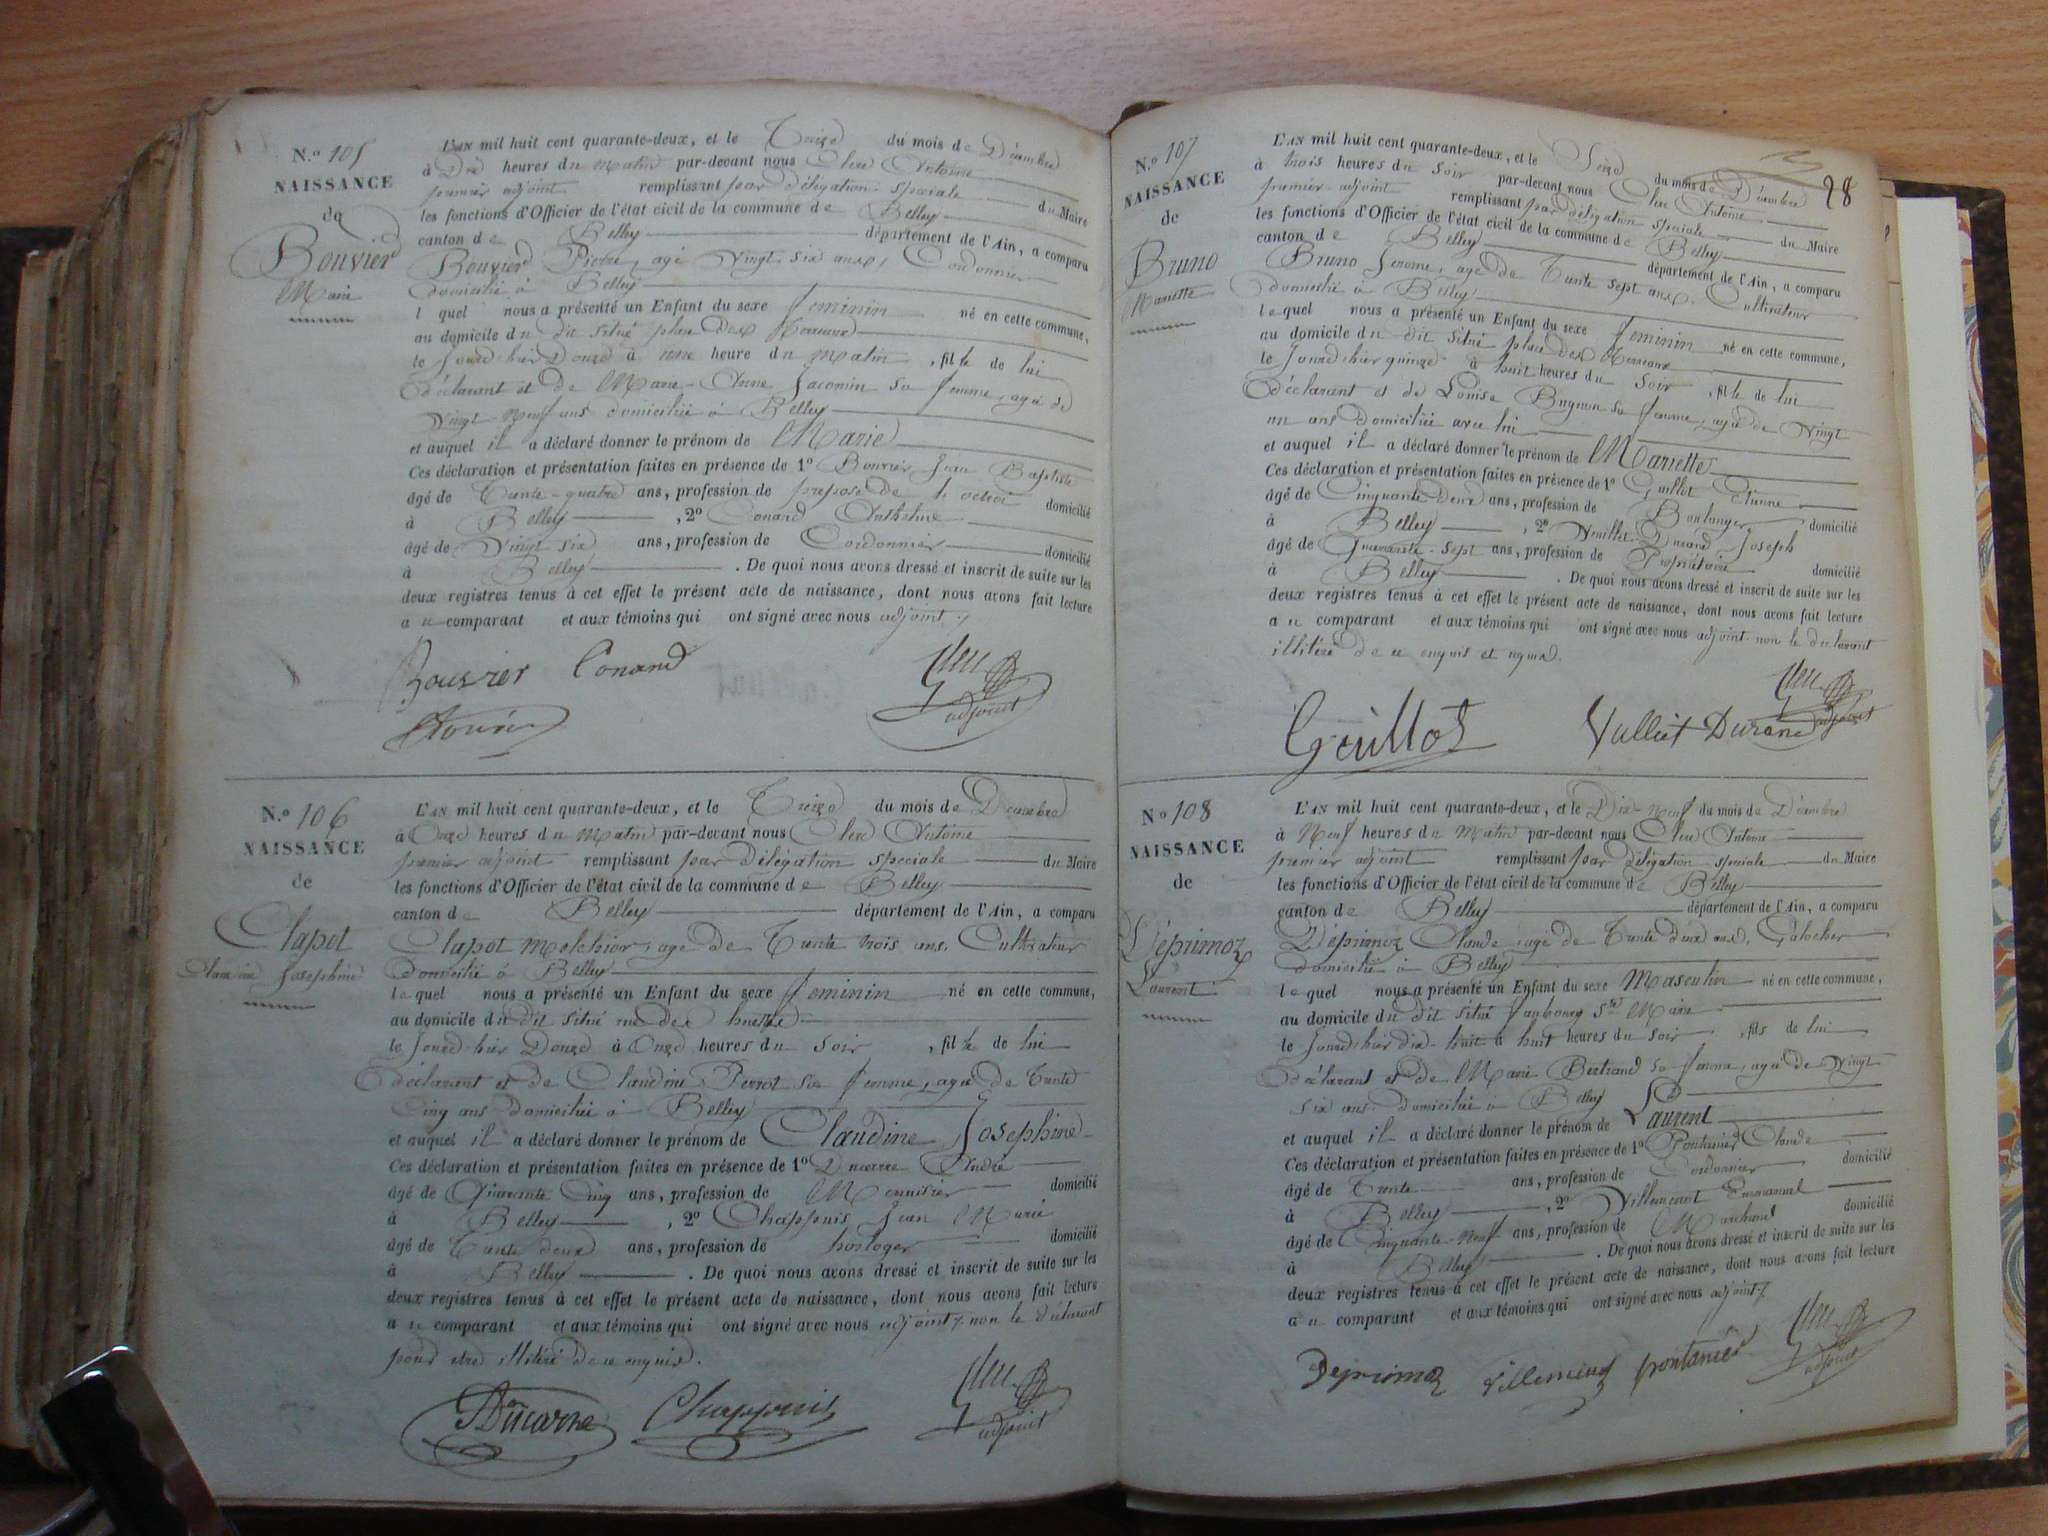 N.º 105
NAISSANCE
de
Bouvier
Marie
L'AN mil huit cent quarante-deux, et le Treize du mois de Décembre
à Dix heures du matin par-devant nous Clerc Antoine
premier adjoint remplissant par délégation spéciale du Maire
les fonctions d'Officier de l'état civil de la commune de Belley
canton de Belley département de l'Ain, a comparu
Bouvier Pierre, agé Vingt six ans, Cordonnier
domicilié à Belley
lequel nous a présenté un Enfant du sexe féminin né en cette commune,
au domicile du dit situé place des Terreaux
le jourd-hier Douze à une heure du matin, fille de lui
déclarant et de Marie-Anne Jacomin sa femme, agée de
Vingt Neuf ans domiciliée à Belley
et auquel il a déclaré donner le prénom de Marie
Ces déclaration et présentation faites en présence de 1º Bouvier Jean Baptiste
âgé de Trente-quatre ans, profession de préposé de l'octroi domicilié
à Belley, 2º Conand Anthelme
âgé de Vingt six ans, profession de Cordonnier domicilié
à Belley. De quoi nous avons dressé et inscrit de suite sur les
deux registres tenus à cet effet le présent acte de naissance, dont nous avons fait lecture
au comparant et aux témoins qui ont signé avec nous adjoint
Bouvier Conand Clerc
adjoint
N.º 106
NAISSANCE
de
Clapot
Claudine Josephine
L'AN mil huit cent quarante-deux, et le Treize du mois de Décembre
à Onze heures du Matin par-devant nous Clerc Antoine
premier adjoint remplissant par délégation spéciale du Maire
les fonctions d'Officier de l'état civil de la commune de Belley
canton de Belley département de l'Ain, a comparu
Clapot Melchior, agé de Trente trois ans, Cultivateur
domicilié à Belley
lequel nous a présenté un Enfant du sexe féminin né en cette commune,
au domicile du dit situé rue des
le jourd-hier Douze à Onze heures du soir, fille de lui
déclarant et de Claudine Perrot sa femme, agée de Trente
Cinq ans domiciliée à Belley
et auquel il a déclaré donner le prénom de Claudine Josephine
Ces déclaration et présentation faites en présence de 1º Ducarre André
âgé de Quarante Cinq ans, profession de Menuisier domicilié
à Belley, 2º Chapponis Jean Marie
âgé de Trente deux ans, profession de horloger domicilié
à Belley. De quoi nous avons dressé et inscrit de suite sur les
deux registres tenus à cet effet le présent acte de naissance, dont nous avons fait lecture
au comparant et aux témoins qui ont signé avec nous adjoint, non le déclarant
pour être illitéré de ce enquis.
Ducarre Chapponis Clerc
adjoint
28
N.º 107
NAISSANCE
de
Bruno
Mariette
L'AN mil huit cent quarante-deux, et le Seize du mois de Décembre
à trois heures du soir par-devant nous Clerc Antoine
premier adjoint remplissant par délégation spéciale du Maire
les fonctions d'Officier de l'état civil de la commune de Belley
canton de Belley département de l'Ain, a comparu
Bruno Jérome, agé de Trente sept ans, Cultivateur
domicilié à Belley
lequel nous a présenté un Enfant du sexe féminin né en cette commune,
au domicile du dit situé place des Terreaux
le jourd-hier quinze à huit heures du soir, fille de lui
déclarant et de Louise Bugnon sa femme, agée de Vingt
un ans domiciliée avec lui
et auquel il a déclaré donner le prénom de Mariette
Ces déclaration et présentation faites en présence de 1º Guillot Etienne
âgé de Cinquante deux ans, profession de Boulanger domicilié
à Belley, 2º Vulliet-Durand Joseph
âgé de Quarante-sept ans, profession de Propriétaire domicilié
à Belley. De quoi nous avons dressé et inscrit de suite sur les
deux registres tenus à cet effet le présent acte de naissance, dont nous avons fait lecture
au comparant et aux témoins qui ont signé avec nous adjoint non le déclarant
illitéré de ce enquis et requis.
Guillot Vulliet Durand Clerc
adjoint
N.º 108
NAISSANCE
de
Déprimoz
Laurent
L'AN mil huit cent quarante-deux, et le Dix-Neuf du mois de Décembre
à Neuf heures du Matin par-devant nous Clerc Antoine
premier adjoint remplissant par délégation spéciale du Maire
les fonctions d'Officier de l'état civil de la commune de Belley
canton de Belley département de l'Ain, a comparu
Déprimoz Claude, agé de Trente deux ans, Galocher
domicilié à Belley
lequel nous a présenté un Enfant du sexe Masculin né en cette commune,
au domicile du dit situé faubourg Ste Marie
le jourd-hier dix-huit à huit heures du soir, fils de lui
déclarant et de Marie Bertrand sa femme, agée de Vingt
six ans domiciliée à Belley
et auquel il a déclaré donner le prénom de Laurent
Ces déclaration et présentation faites en présence de 1º Pontanier Claude
âgé de Trente ans, profession de Cordonnier domicilié
à Belley, 2º Villemenot Emmanuel
âgé de Cinquante-Neuf ans, profession de Marchand domicilié
à Belley. De quoi nous avons dressé et inscrit de suite sur les
deux registres tenus à cet effet le présent acte de naissance, dont nous avons fait lecture
au comparant et aux témoins qui ont signé avec nous adjoint
Deprimoz pontanier Clerc
adjoint